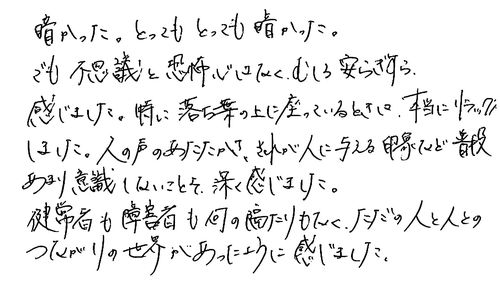 暗かった。とってもとっても暗かった。
でも不思議と恐怖心はなく、むしろ安らぎすら
感じました。特に落ち葉の上に座っているときは、本当にリラックス
しました。人の声のあたたかさ、それが人に与える印象など普段
あまり意識しないことを、深く感じました。
健常者も障害者も何の隔たりもなく、ただの人と人との
つながりの世界があったように感じました。